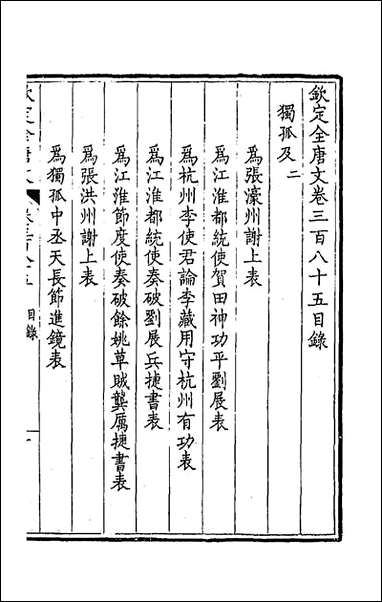 欽定全唐文卷三百八十五目錄
獨孤及二
爲張濠州謝上表
爲江淮都統使賀田神功平劉展表
爲杭州李使君論李藏用守杭州有功表
爲江淮都統使奏破劉展兵捷書表
爲江淮節度使奏破餘姚草賊龔厲捷書表
爲張洪州謝上表
爲獨孤中丞天長節進鏡表
目錄